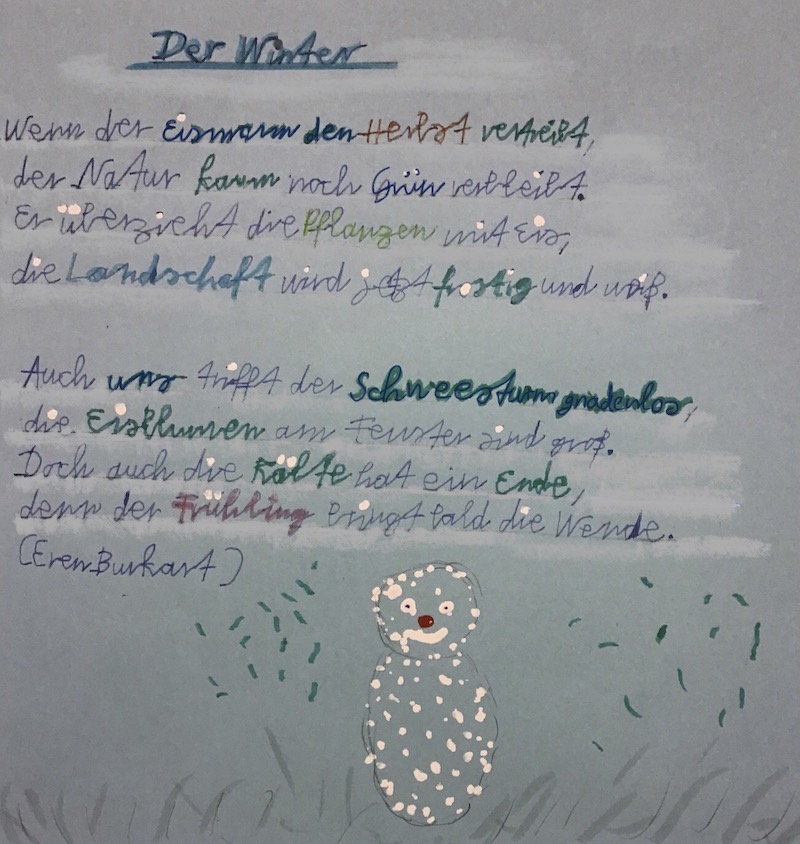 Der Winter
Wenn der Eismann den Herbst vertreibt,
der Natur kaum noch Grün verbleibt.
Er überzieht die Pflanzen mit Eis,
die Landschaft wird jetzt frostig und weiß.
Auch uns trifft der Schneesturm gnadenlos,
die Eisblumen am Fenster sind groß.
Doch auch die Kälte hat ein Ende,
denn der Frühling bringt bald die Wende.
(Eren Burkart)